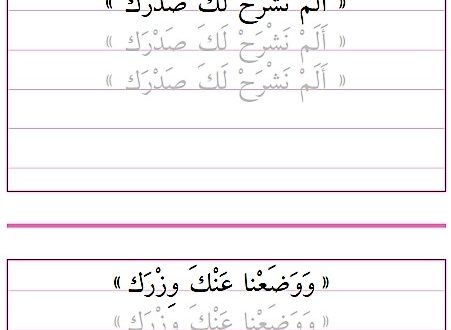 « أَلَمْ نَشْرَحْ لَكَ صَدْرَك »
« أَلَمْ نَشْرَحْ لَكَ صَدْرَك »
« أَلَمْ نَشْرَحْ لَكَ صَدْرَك »
« وَوَضَعْنا عَنْكَ وِزْرَك »
« وَوَضَعْنا عَنْكَ وِزْرَك »